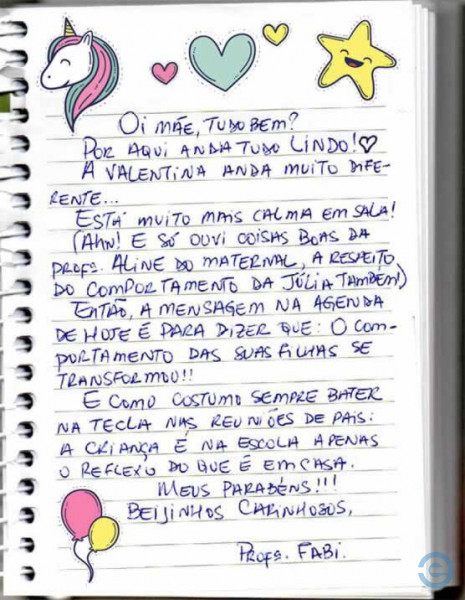 OI MÃE, TUDO BEM?
POR AQUI ANDA TUDO LINDO!♡
A VALENTINA ANDA MUITO DIFE-
RENTE...
ESTÁ MUITO MAIS CALMA EM SALA!
(AHN! E SÓ OUVI COISAS BOAS DA
PROFS. ALINE DO MATERNAL, A RESPEITO
DO COMPORTAMENTO DA JÚLIA TAMBÉM!)
ENTÃO, A MENSAGEM NA AGENDA
DE HOJE É PARA DIZER QUE: O COM-
PORTAMENTO DAS SUAS FILHAS SE
TRANSFORMOU!!
E COMO COSTUMO SEMPRE BATER
NA TECLA NAS REUNIÕES DE PAIS:
A CRIANÇA É NA ESCOLA APENAS
O REFLEXO DO QUE É EM CASA.
MEUS PARABÉNS!!!
BEIJINHOS CARINHOSOS,
PROFS. FABI.